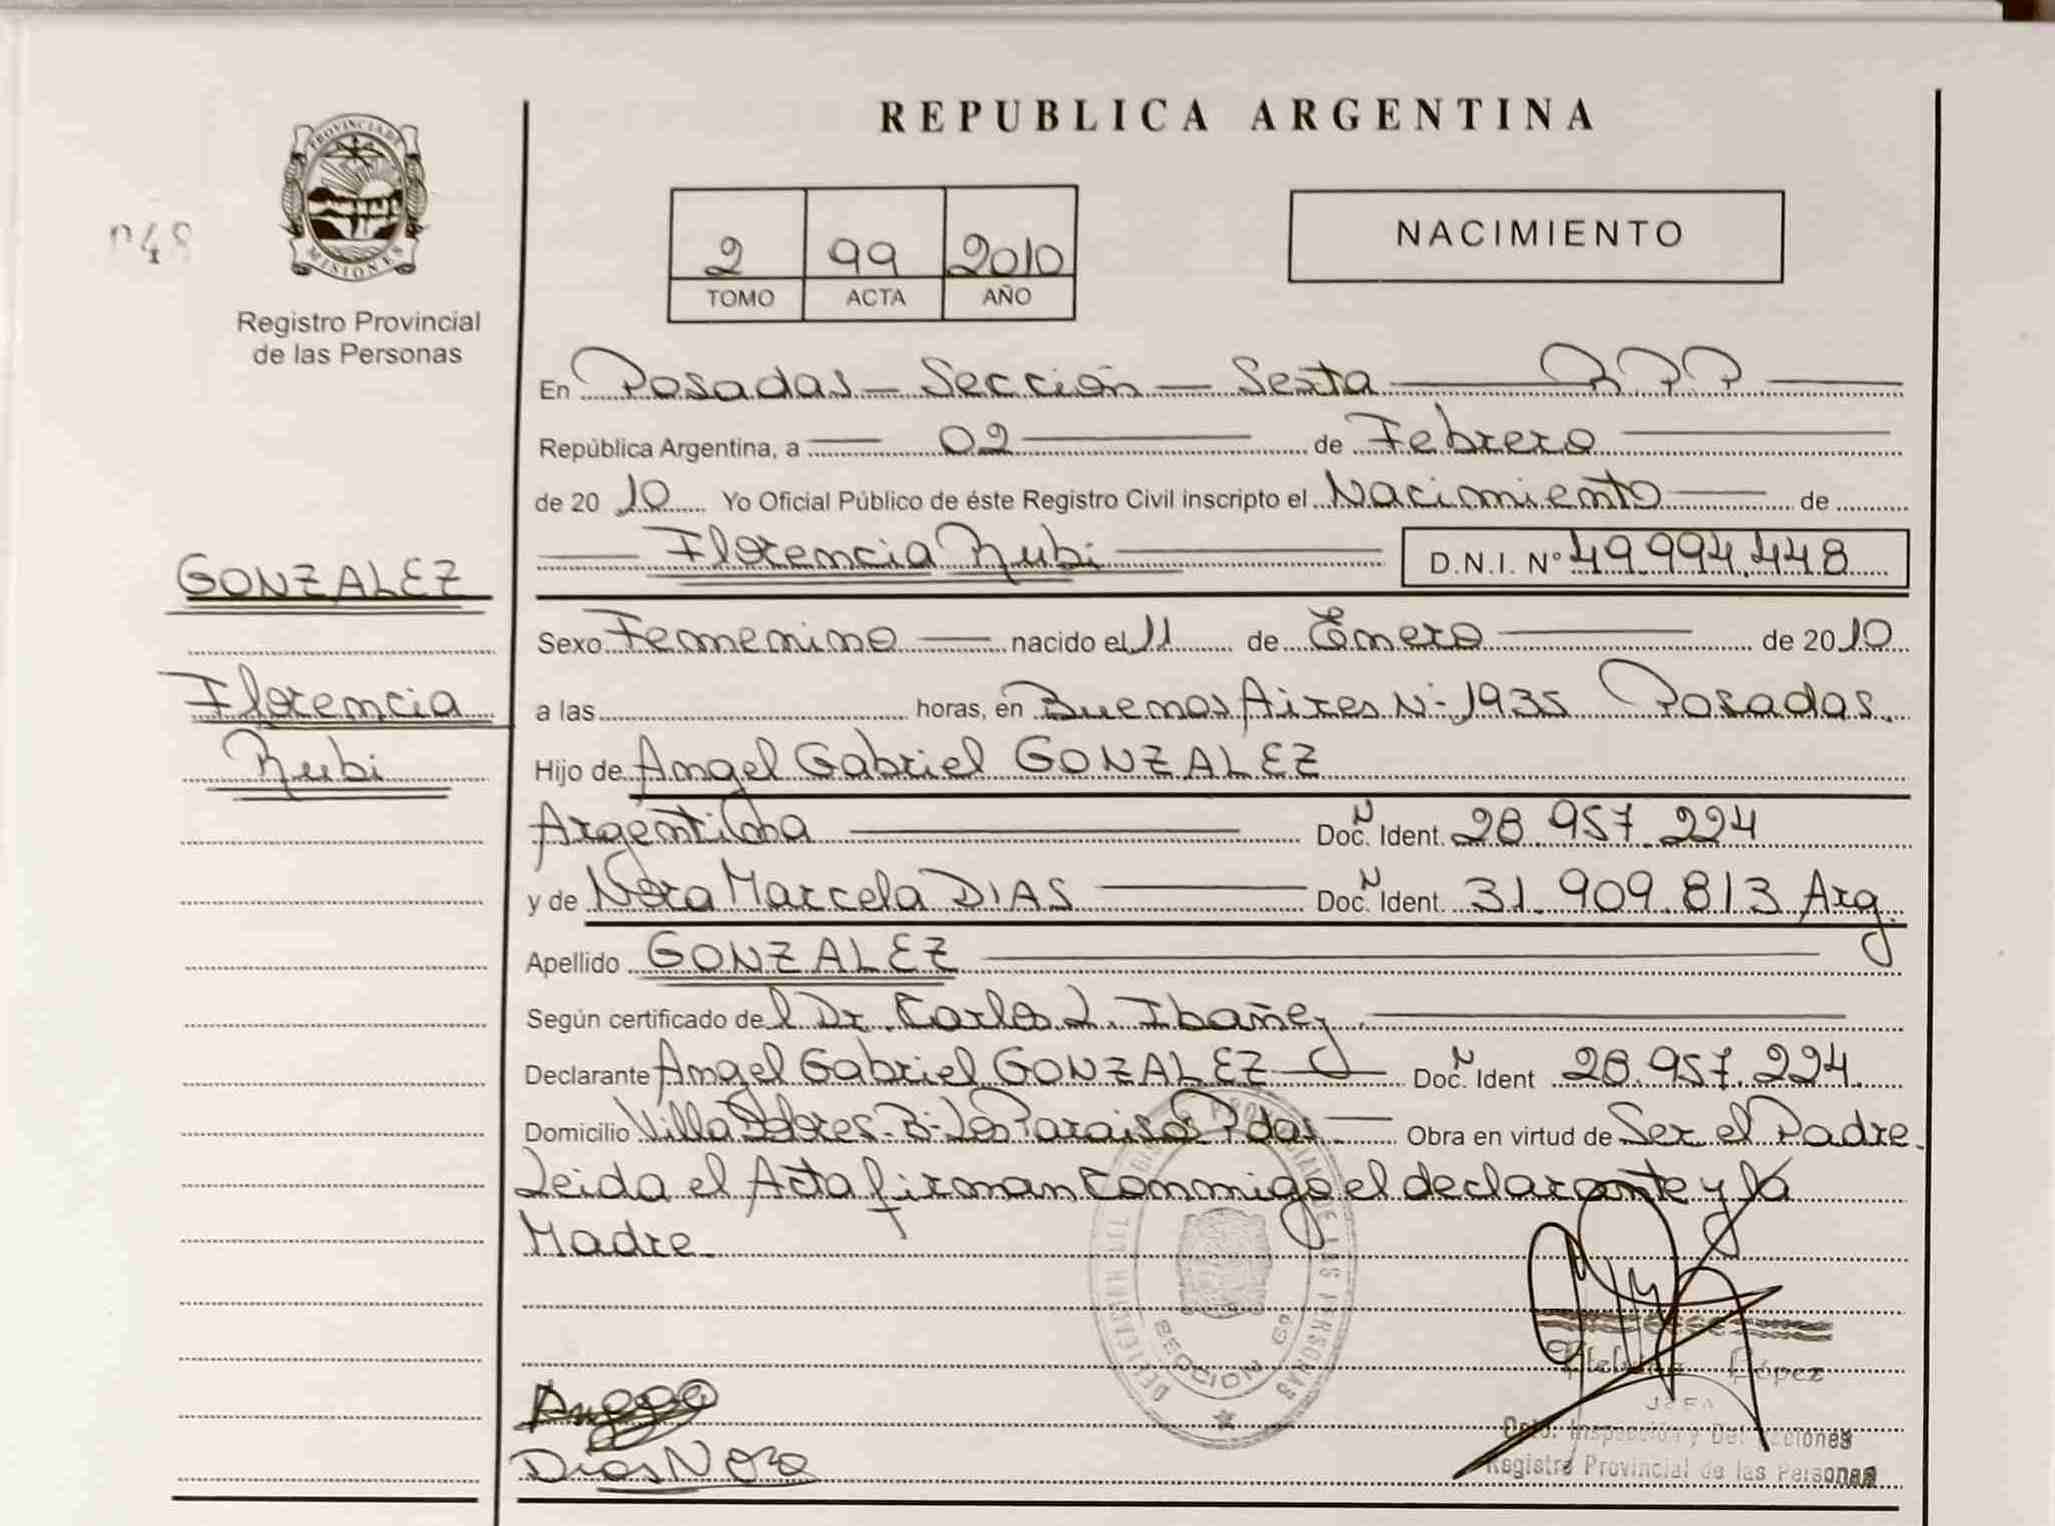 REPUBLICA ARGENTINA
PROVINCIA DE
MISIONES
Registro Provincial
de las Personas
2 99 2010
TOMO ACTA AÑO
NACIMIENTO
En Posadas - Sección - Sexta - R.P.P.
República Argentina, a 02 de Febrero
de 2010 Yo Oficial Público de éste Registro Civil inscripto el Nacimiento de
Florencia Rubi D.N.I. N° 49.994.448
GONZALEZ
Florencia
Rubi
Sexo Femenino nacido el 11 de Enero de 2010
a las horas, en Buenos Aires N- 1935 Posadas.
Hijo de Angel Gabriel GONZALEZ
Argentina Doc. Ident. 28.957.224
y de Nora Marcela DIAS Doc. Ident. 31.909.813 Arg.
Apellido GONZALEZ
Según certificado del Dr. Carlos L. Ibañez
Declarante Angel Gabriel GONZALEZ Doc. Ident 28.957.224.
Domicilio Villa Dolores - B- Los Paraisos Pdas. Obra en virtud de Ser el Padre.
Leida el Acta firman conmigo el declarante y la
Madre.
SECCION 6ª
Dias Nora
López
JEFA
Dpto. Inspección y Delegaciones
Registro Provincial de las Personas